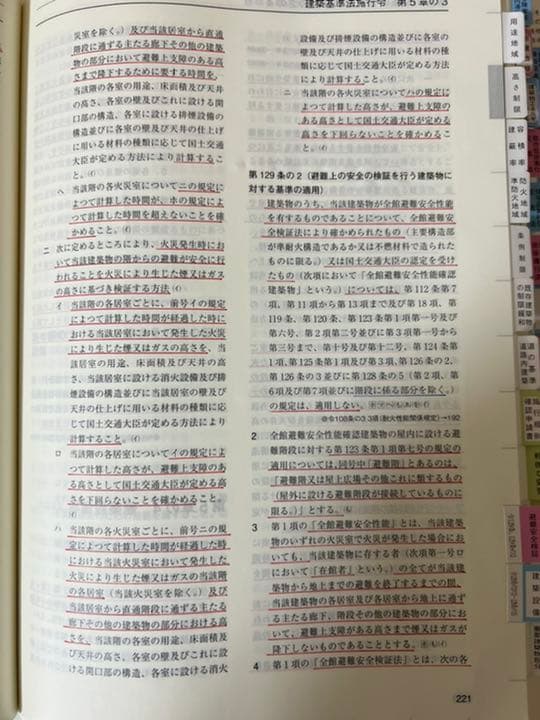 建築基準法施行令 第5章の3
災室を除く。)及び当該居室から直通
階段に通ずる主たる廊下その他の建築
物の部分において避難上支障のある高
さまで降下するために要する時間を、
当該各室の用途、床面積及び天井
の高さ、各室の壁及びこれに設ける開
口部の構造、各室に設ける排煙設備の
構造並びに各室の壁及び天井の仕上げ
に用いる材料の種類に応じて国土交通
大臣が定める方法により計算するこ
と。(イ)
ヘ 当該階の各火災室についてニの規定に
よつて計算した時間が、ホの規定によ
つて計算した時間を超えないことを確
かめること。(イ)
二 次に定めるところにより、火災発生時にお
いて当該建築物の階からの避難が安全に行
われることを火災により生じた煙又はガス
の高さに基づき検証する方法
イ 当該階の各居室ごとに、前号イの規定
によつて計算した時間が経過した時に
おける当該居室において発生した火災
により生じた煙又はガスの高さを、当
該居室の用途、床面積及び天井の高
さ、当該居室に設ける消火設備及び排
煙設備の構造並びに当該居室の壁及び
天井の仕上げに用いる材料の種類に応
じて国土交通大臣が定める方法により
計算すること。(イ)
ロ 当該階の各居室についてイの規定によ
つて計算した高さが、避難上支障のあ
る高さとして国土交通大臣が定める高
さを下回らないことを確かめること。
(イ)
ハ 当該階の各火災室ごとに、前号ニの規
定によつて計算した時間が経過した時に
おける当該火災室において発生した
火災により生じた煙又はガスの当該階
の各居室(当該火災室を除く。)及び
当該居室から直通階段に通ずる主たる
廊下その他の建築物の部分における高
さを、当該各室の用途、床面積及
び天井の高さ、各室の壁及びこれに設
ける開口部の構造、各室に設ける消火
設備及び排煙設備の構造並びに各室の
壁及び天井の仕上げに用いる材料の種
類に応じて国土交通大臣が定める方法
により計算すること。(イ)
ニ 当該階の各火災室についてハの規定に
よつて計算した高さが、避難上支障の
ある高さとして国土交通大臣が定める
高さを下回らないことを確かめるこ
と。(イ)
第129条の2(避難上の安全の検証を行う建築物に
対する基準の適用)
建築物のうち、当該建築物が全館避難安全性能
を有するものであることについて、全館避難安
全検証法により確かめられたもの(主要構造部
が準耐火構造であるか又は不燃材料で造られた
ものに限る。)又は国土交通大臣の認定を受け
たもの(次項において「全館避難安全性能確認
建築物」という。)については、第112条第7
項、第11項から第13項まで及び第18項、第
119条、第120条、第123条第1項第一号及び
第六号、第2項第二号並びに第3項第一号から
第三号まで、第十号及び第十二号、第124条第
1項、第125条第1項及び第3項、第126条の2、
第126条の3並びに第128条の5(第2項、第
6項及び第7項並びに階段に係る部分を除く。)
の規定は、適用しない。
◎令108条の3 3項(耐火性能関係規定)→192
2 全館避難安全性能確認建築物の屋内に設ける避
難階段に対する第123条第1項第七号の規定の
適用については、同号中「避難階」とあるのは、
「避難階又は屋上広場その他これに類するもの
(屋外に設ける避難階段が接続しているものに
限る。)」とする。
3 第1項の「全館避難安全性能」とは、当該建築
物のいずれの火災室で火災が発生した場合にお
いても、当該建築物に存する者(次項第一号ロ
において「在館者」という。)の全てが当該建
築物から地上までの避難を終了するまでの間、
当該建築物の各居室及び各居室から地上に通ず
る主たる廊下、階段その他の建築物の部分にお
いて、避難上支障がある高さまで煙又はガスが
降下しないものであることとする。
4 第1項の「全館避難安全検証法」とは、次の各
221
用途地域
高さ制限
容積率
建蔽率
防火地域
準防火地域
条例制限
既存建築物の制限緩和
道の基準
道路内建築
確認申請書
避難安全検証
建築設備